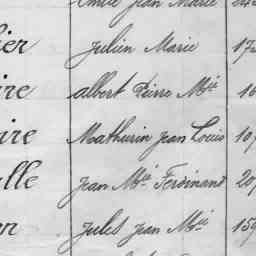 Jean Marie
ier Julien Marie 17
ire albert Pierre Mie 16
ire Mathurin jean Louis 10
lle jean Mie Ferdinand 20
n jules jean Mie 159